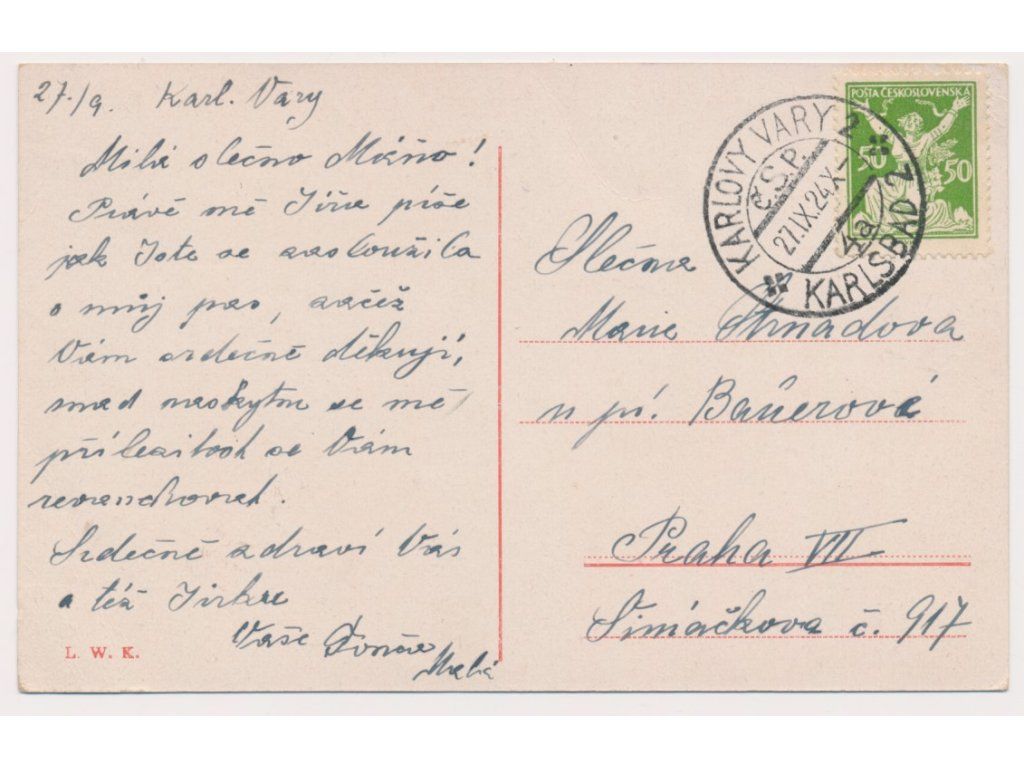 27./9. Karl. Vary
Milá slečno Máňo!
Právě mě Jiřa píše
jak Jste se zasloužila
o můj pas, začež
Vám srdečně děkuji,
snad naskytne se mě
příležitost se Vám
revanchovat.
Srdečně zdraví Vás
a též Jirku
Vaše
Malá
L. W. K.
POŠTA ČESKOSLOVENSKÁ
50 50
KARLOVY VARY 2
Č.S.P.
27.IX.24.X-
4a
KARLSBAD 2
Slečna
Marie Strnadova
u pí. Bauerové
Praha VII
Šimáčkova č. 917